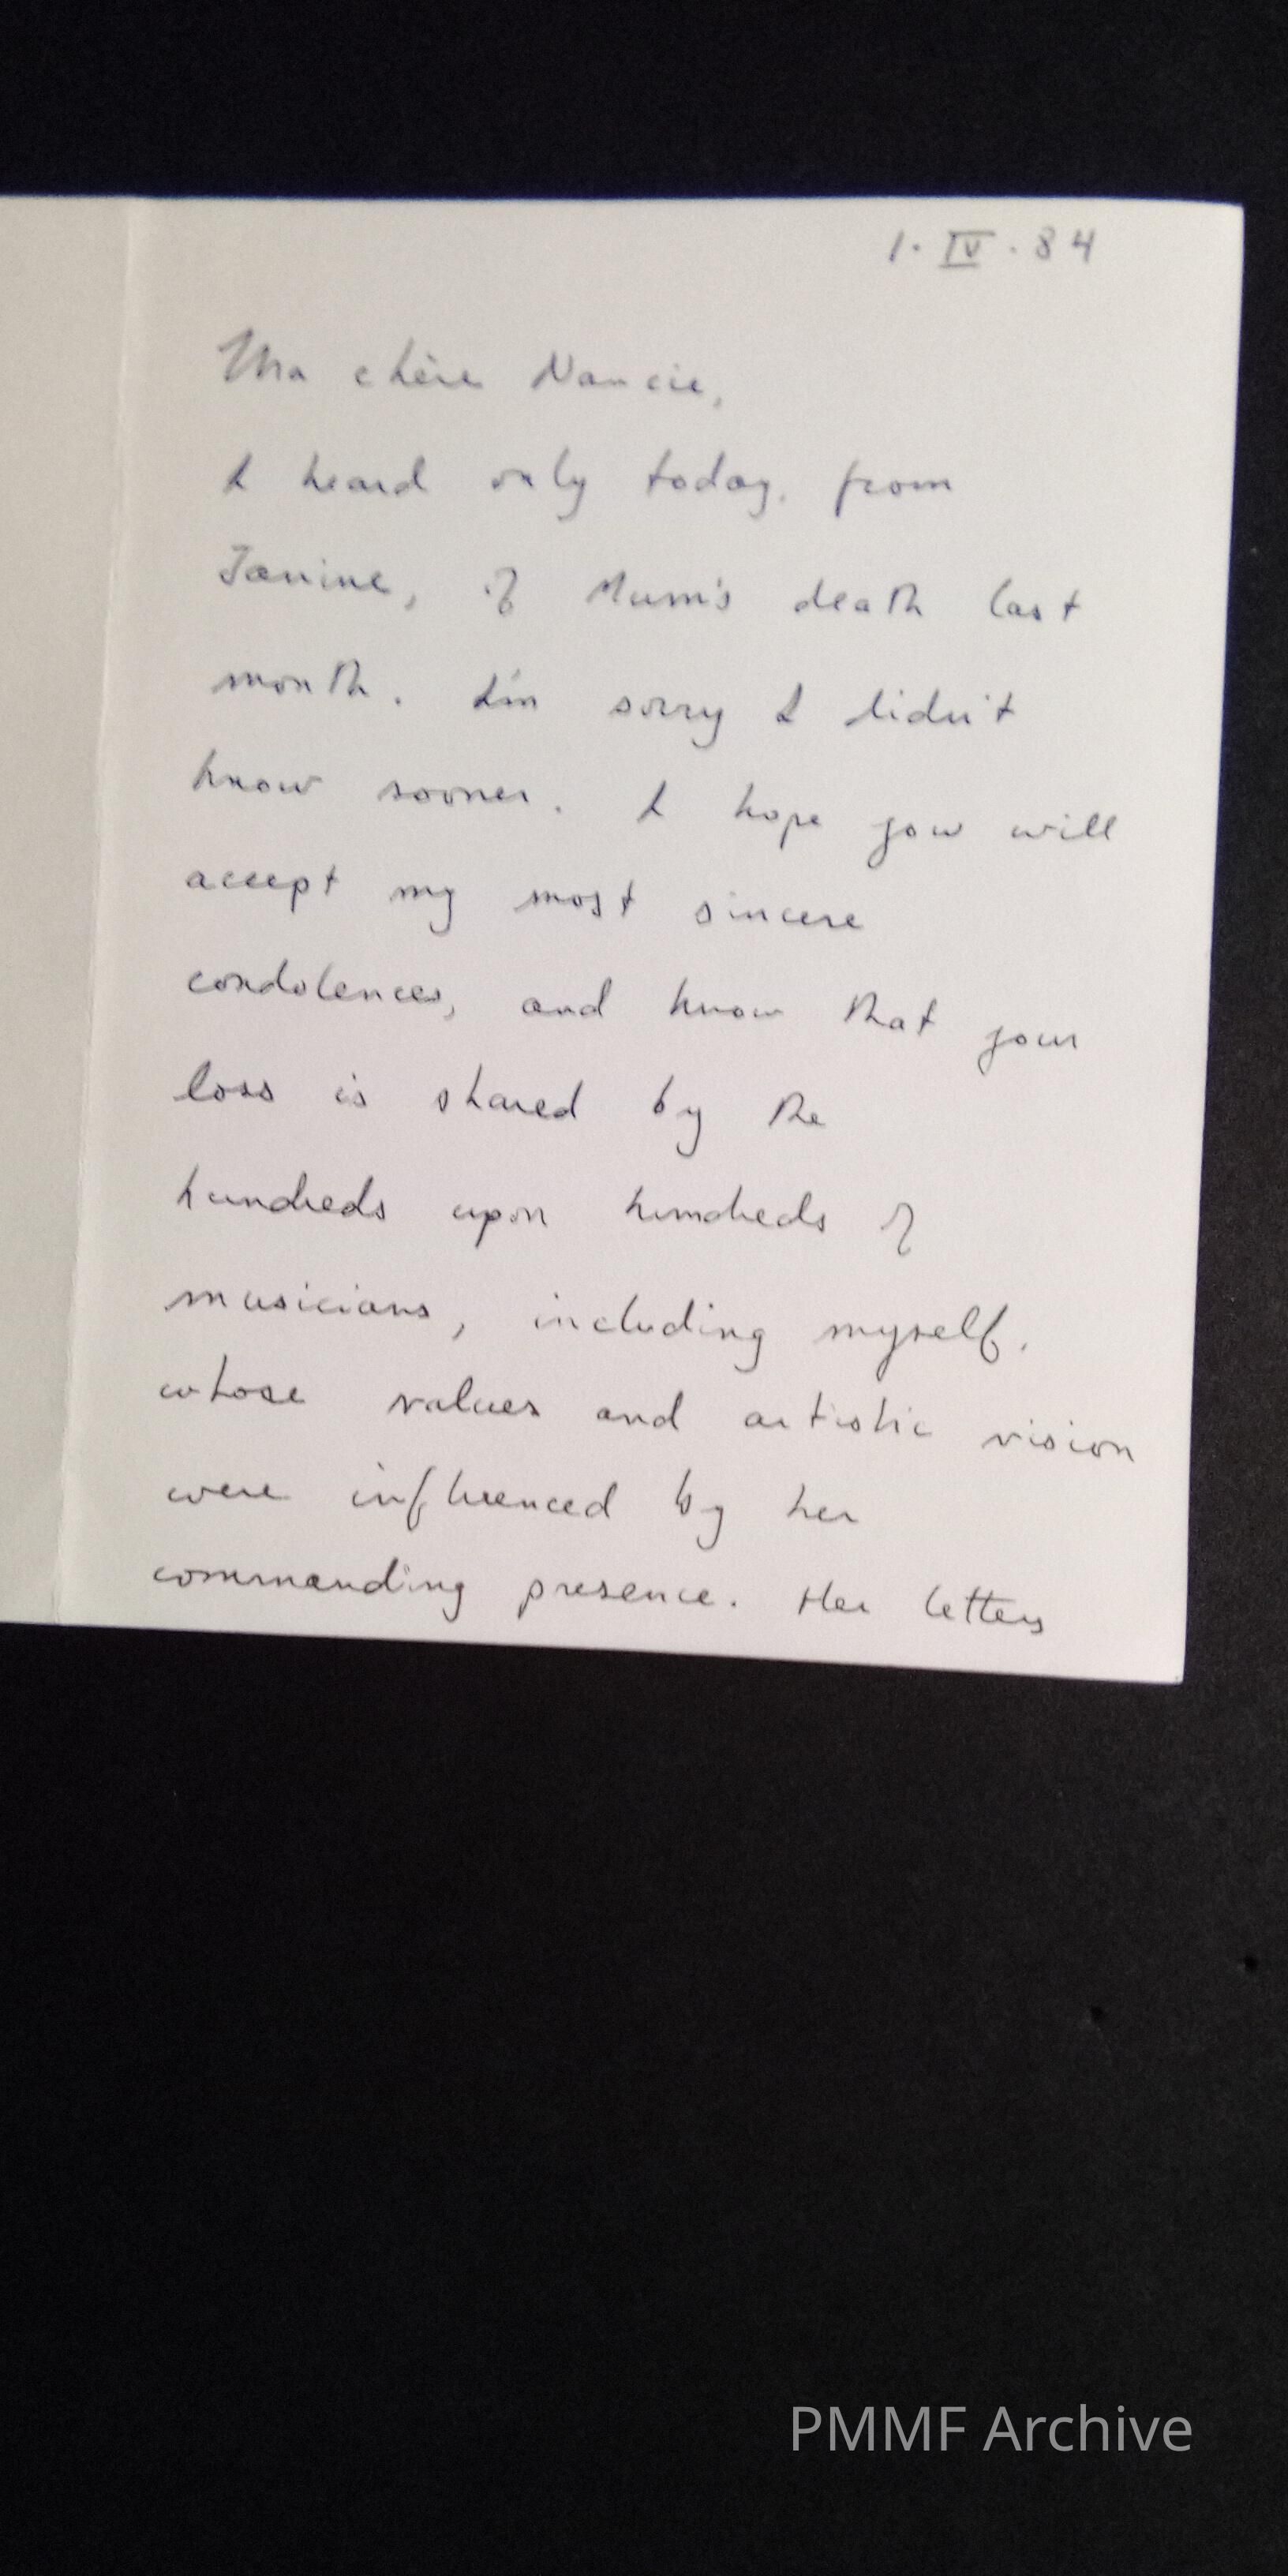 1. IV. 84
Ma chère Nancie,
I heard only today, from
Janine, of Mum's death last
month. I'm sorry I didn't
know sooner. I hope you will
accept my most sincere
condolences, and know that your
loss is shared by the
hundreds upon hundreds of
musicians, including myself,
whose values and artistic vision
were influenced by her
commanding presence. Her letters
PMMF Archive